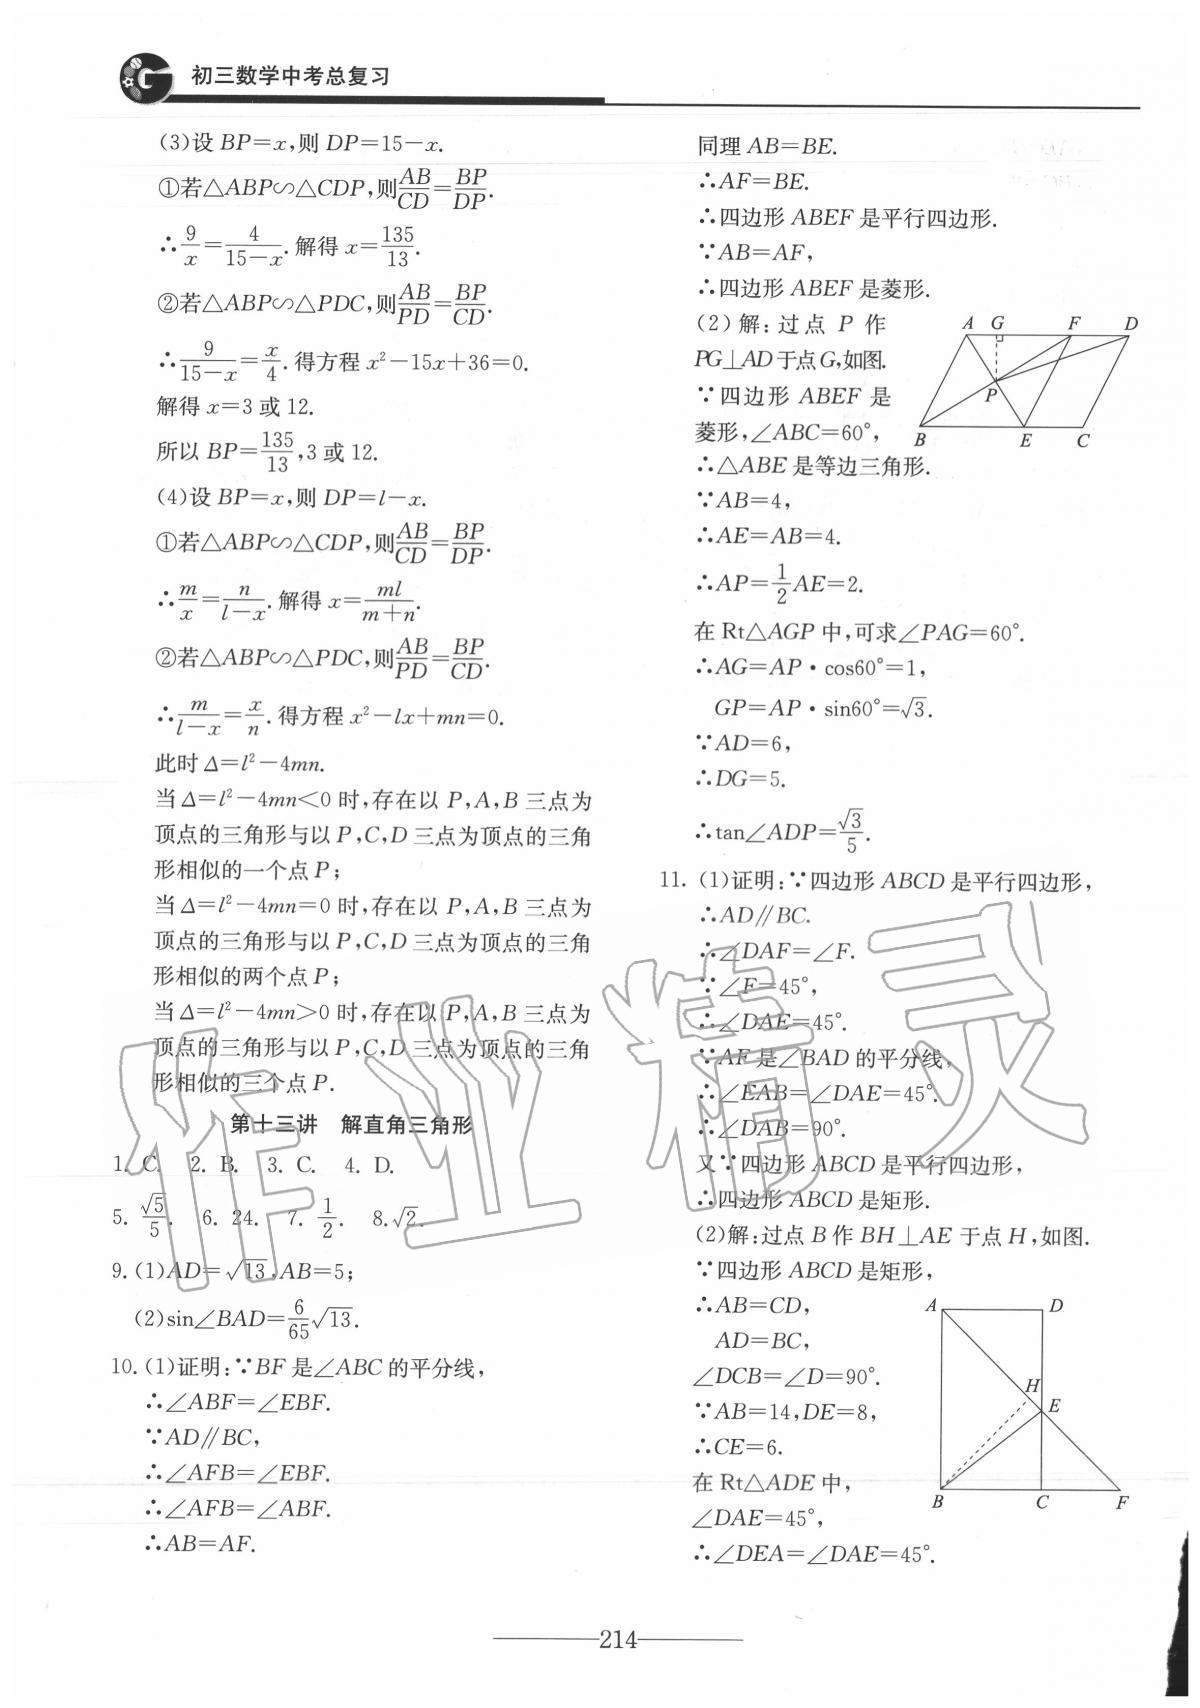 初三数学中考总复习
(3)设 BP=x,则 DP=15-x.
①若△ABP∽△CDP,则AB/CD=BP/DP.
∴9/x=4/(15-x).解得 x=135/13.
②若△ABP∽△PDC,则AB/PD=BP/CD.
∴9/(15-x)=x/4.得方程 x²-15x+36=0.
解得 x=3 或 12.
所以 BP=135/13,3 或 12.
(4)设 BP=x,则 DP=l-x.
①若△ABP∽△CDP,则AB/CD=BP/DP.
∴m/x=n/(l-x).解得 x=ml/(m+n).
②若△ABP∽△PDC,则AB/PD=BP/CD.
∴m/(l-x)=x/n.得方程 x²-lx+mn=0.
此时 Δ=l²-4mn.
当 Δ=l²-4mn<0 时,存在以 P,A,B 三点为
顶点的三角形与以 P,C,D 三点为顶点的三角
形相似的一个点 P;
当 Δ=l²-4mn=0 时,存在以 P,A,B 三点为
顶点的三角形与以 P,C,D 三点为顶点的三角
形相似的两个点 P;
当 Δ=l²-4mn>0 时,存在以 P,A,B 三点为
顶点的三角形与以 P,C,D 三点为顶点的三角
形相似的三个点 P.
第十三讲 解直角三角形
1. C. 2. B. 3. C. 4. D.
5. √5/5. 6. 24. 7. 1/2. 8.√2.
9. (1)AD=√13,AB=5;
(2)sin∠BAD=6/65√13.
10. (1)证明:∵BF 是∠ABC 的平分线,
∴∠ABF=∠EBF.
∵AD∥BC,
∴∠AFB=∠EBF.
∴∠AFB=∠ABF.
∴AB=AF.
同理 AB=BE.
∴AF=BE.
∴四边形 ABEF 是平行四边形.
∵AB=AF,
∴四边形 ABEF 是菱形.
(2)解:过点 P 作
PG⊥AD 于点 G,如图.
∵四边形 ABEF 是
菱形,∠ABC=60°,
A G F D
P
B E C
∴△ABE 是等边三角形.
∵AB=4,
∴AE=AB=4.
∴AP=1/2AE=2.
在 Rt△AGP 中,可求∠PAG=60°.
∴AG=AP·cos60°=1,
GP=AP·sin60°=√3.
∵AD=6,
∴DG=5.
∴tan∠ADP=√3/5.
11. (1)证明:∵四边形 ABCD 是平行四边形,
∴AD∥BC.
∴∠DAF=∠F.
∵∠F=45°,
∴∠DAE=45°.
∵AF 是∠BAD 的平分线,
∴∠EAB=∠DAE=45°.
∴∠DAB=90°.
又∵四边形 ABCD 是平行四边形,
∴四边形 ABCD 是矩形.
(2)解:过点 B 作 BH⊥AE 于点 H,如图.
∵四边形 ABCD 是矩形,
∴AB=CD,
AD=BC,
∠DCB=∠D=90°.
∵AB=14,DE=8,
∴CE=6.
在 Rt△ADE 中,
∠DAE=45°,
∴∠DEA=∠DAE=45°.
A D
H
E
B C F
作业精灵
214